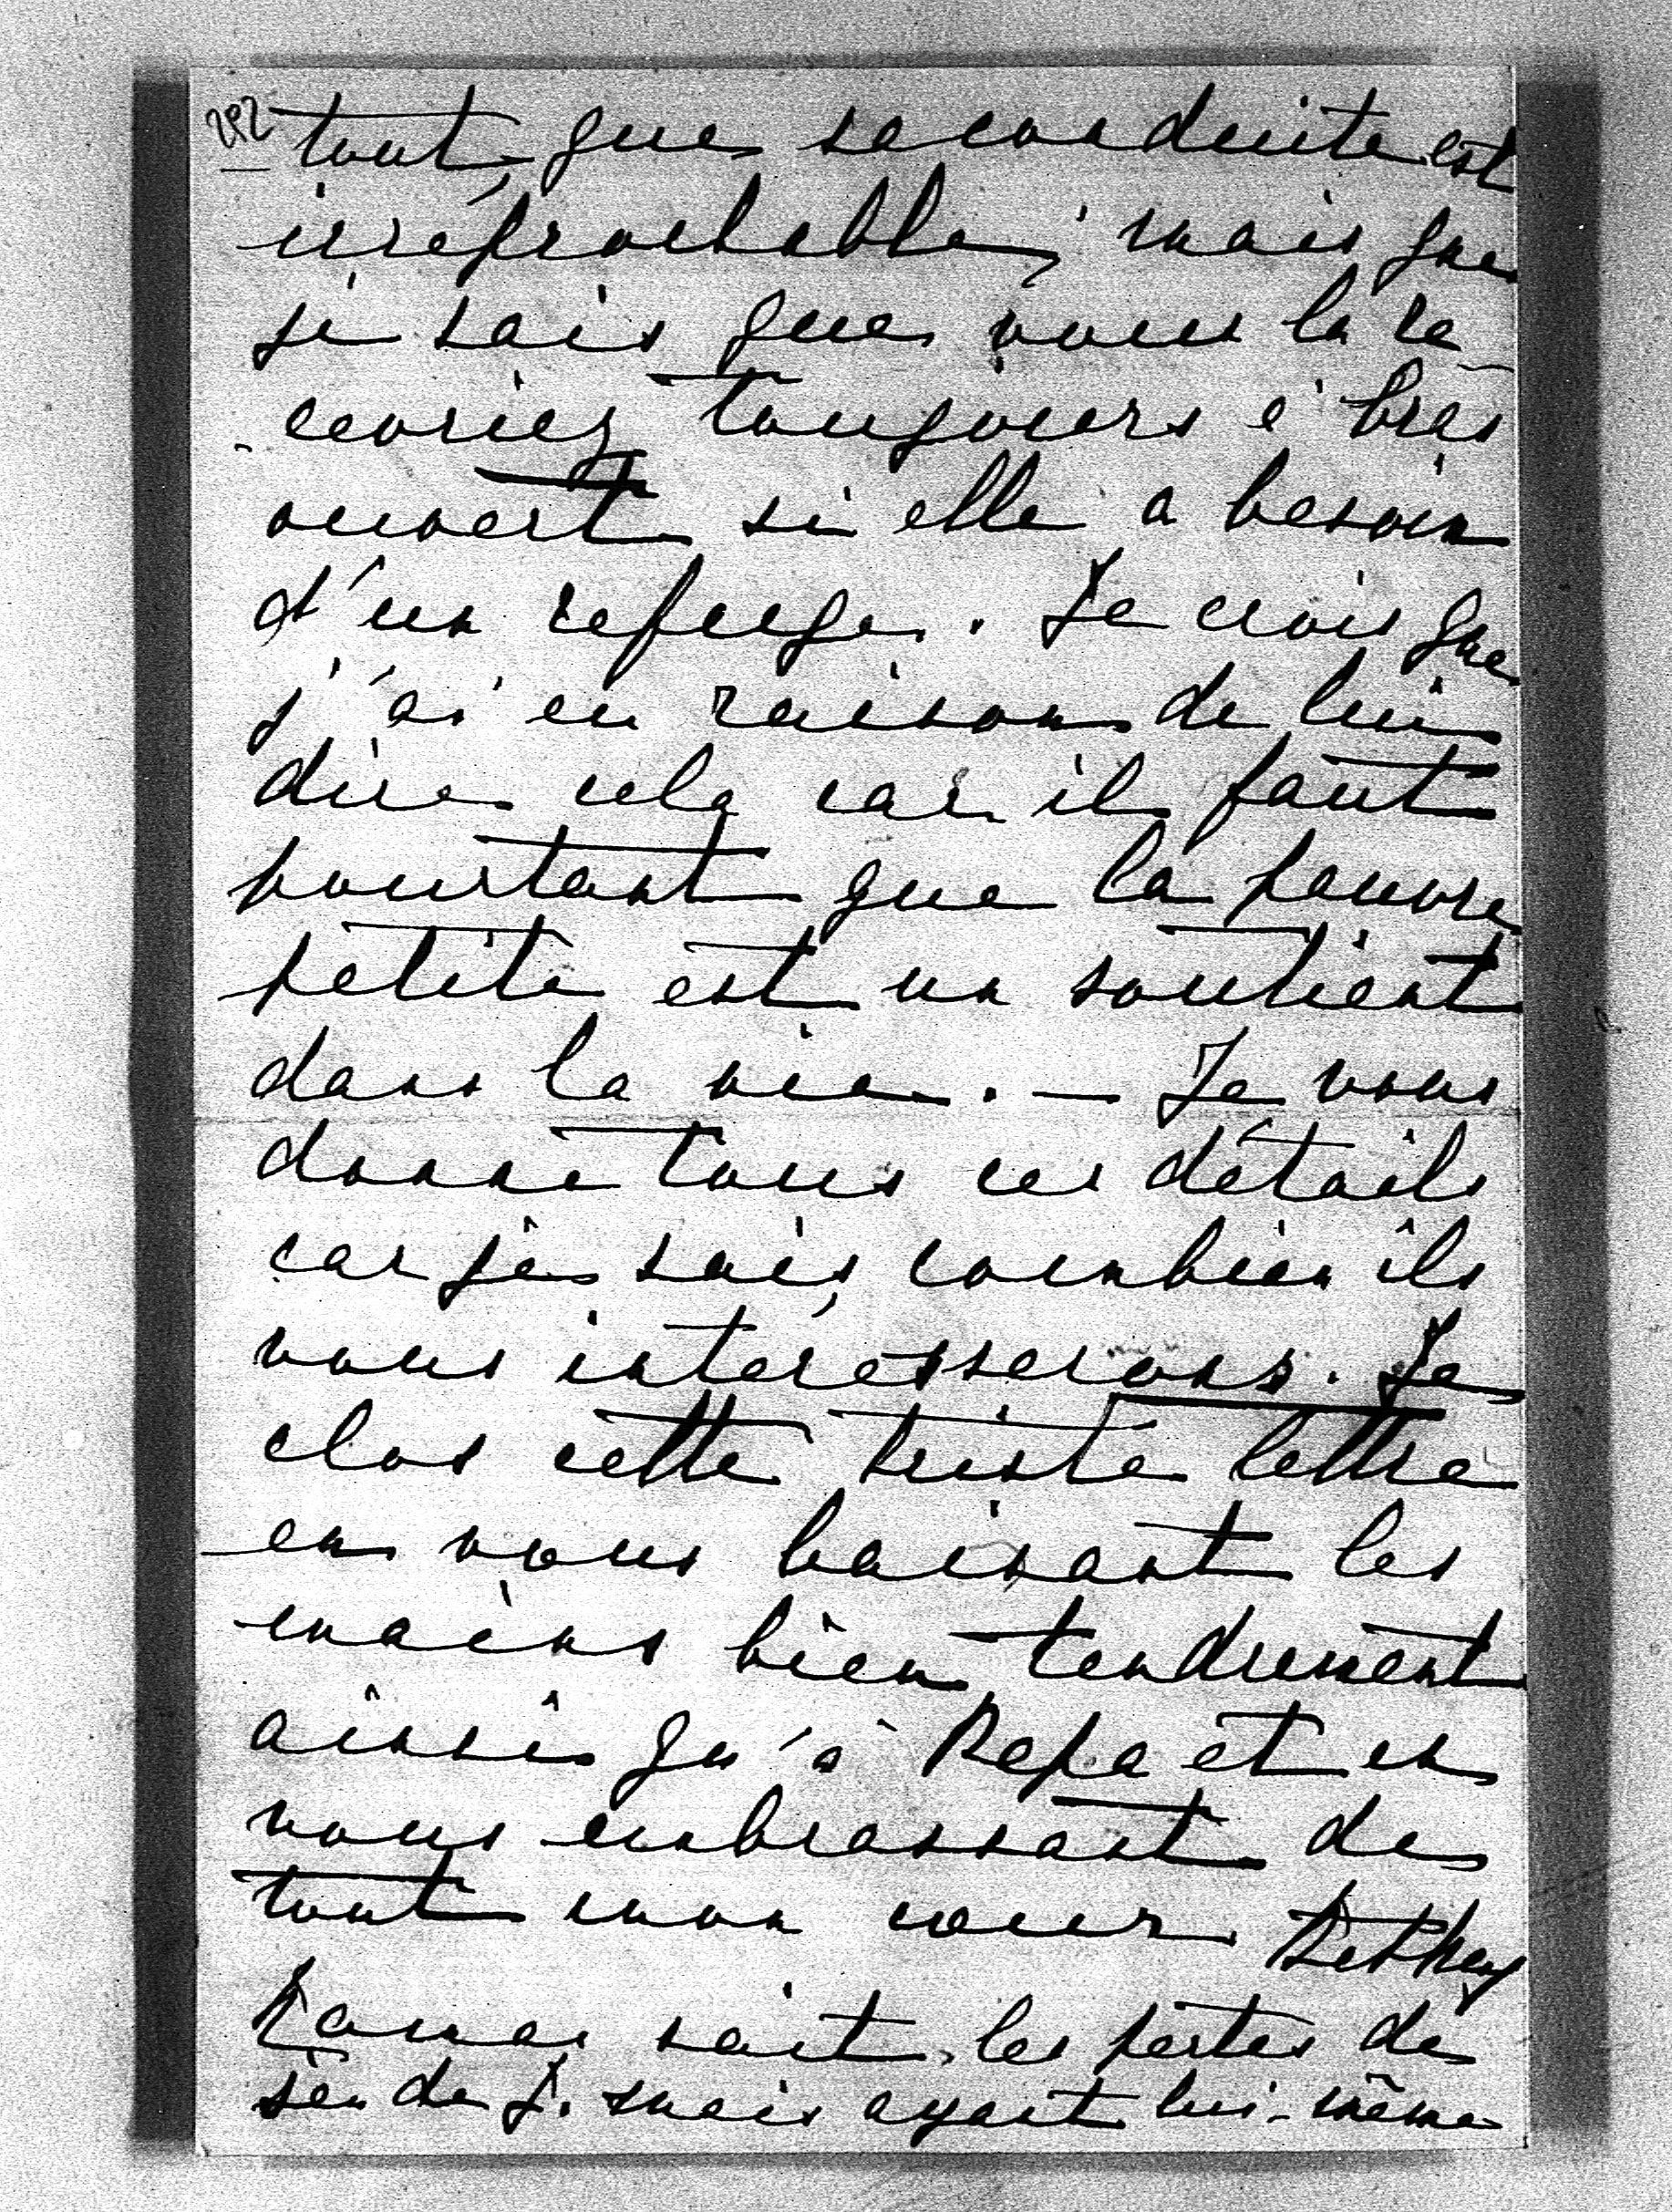 292
tout, que sa conduite est
irréprochable, mais que
je sais que vous la re-
cevriez toujours à bras
ouvert si elle a besoin
d'un refuge. Je crois que
j'ai eu raison de lui
dire cela car il faut
pourtant que la pauvre
petite est un soutient
dans la vie. — Je vous
donne tous ces détails
car je sais combien ils
vous intéresserons. Je
clos cette triste lettre
en vous baisant les
mains bien tendrement
ainsi qu'à Papa et en
vous embrassant de
tout mon cœur.
sait les pertes de
jeu de J. mais ayant lui-même